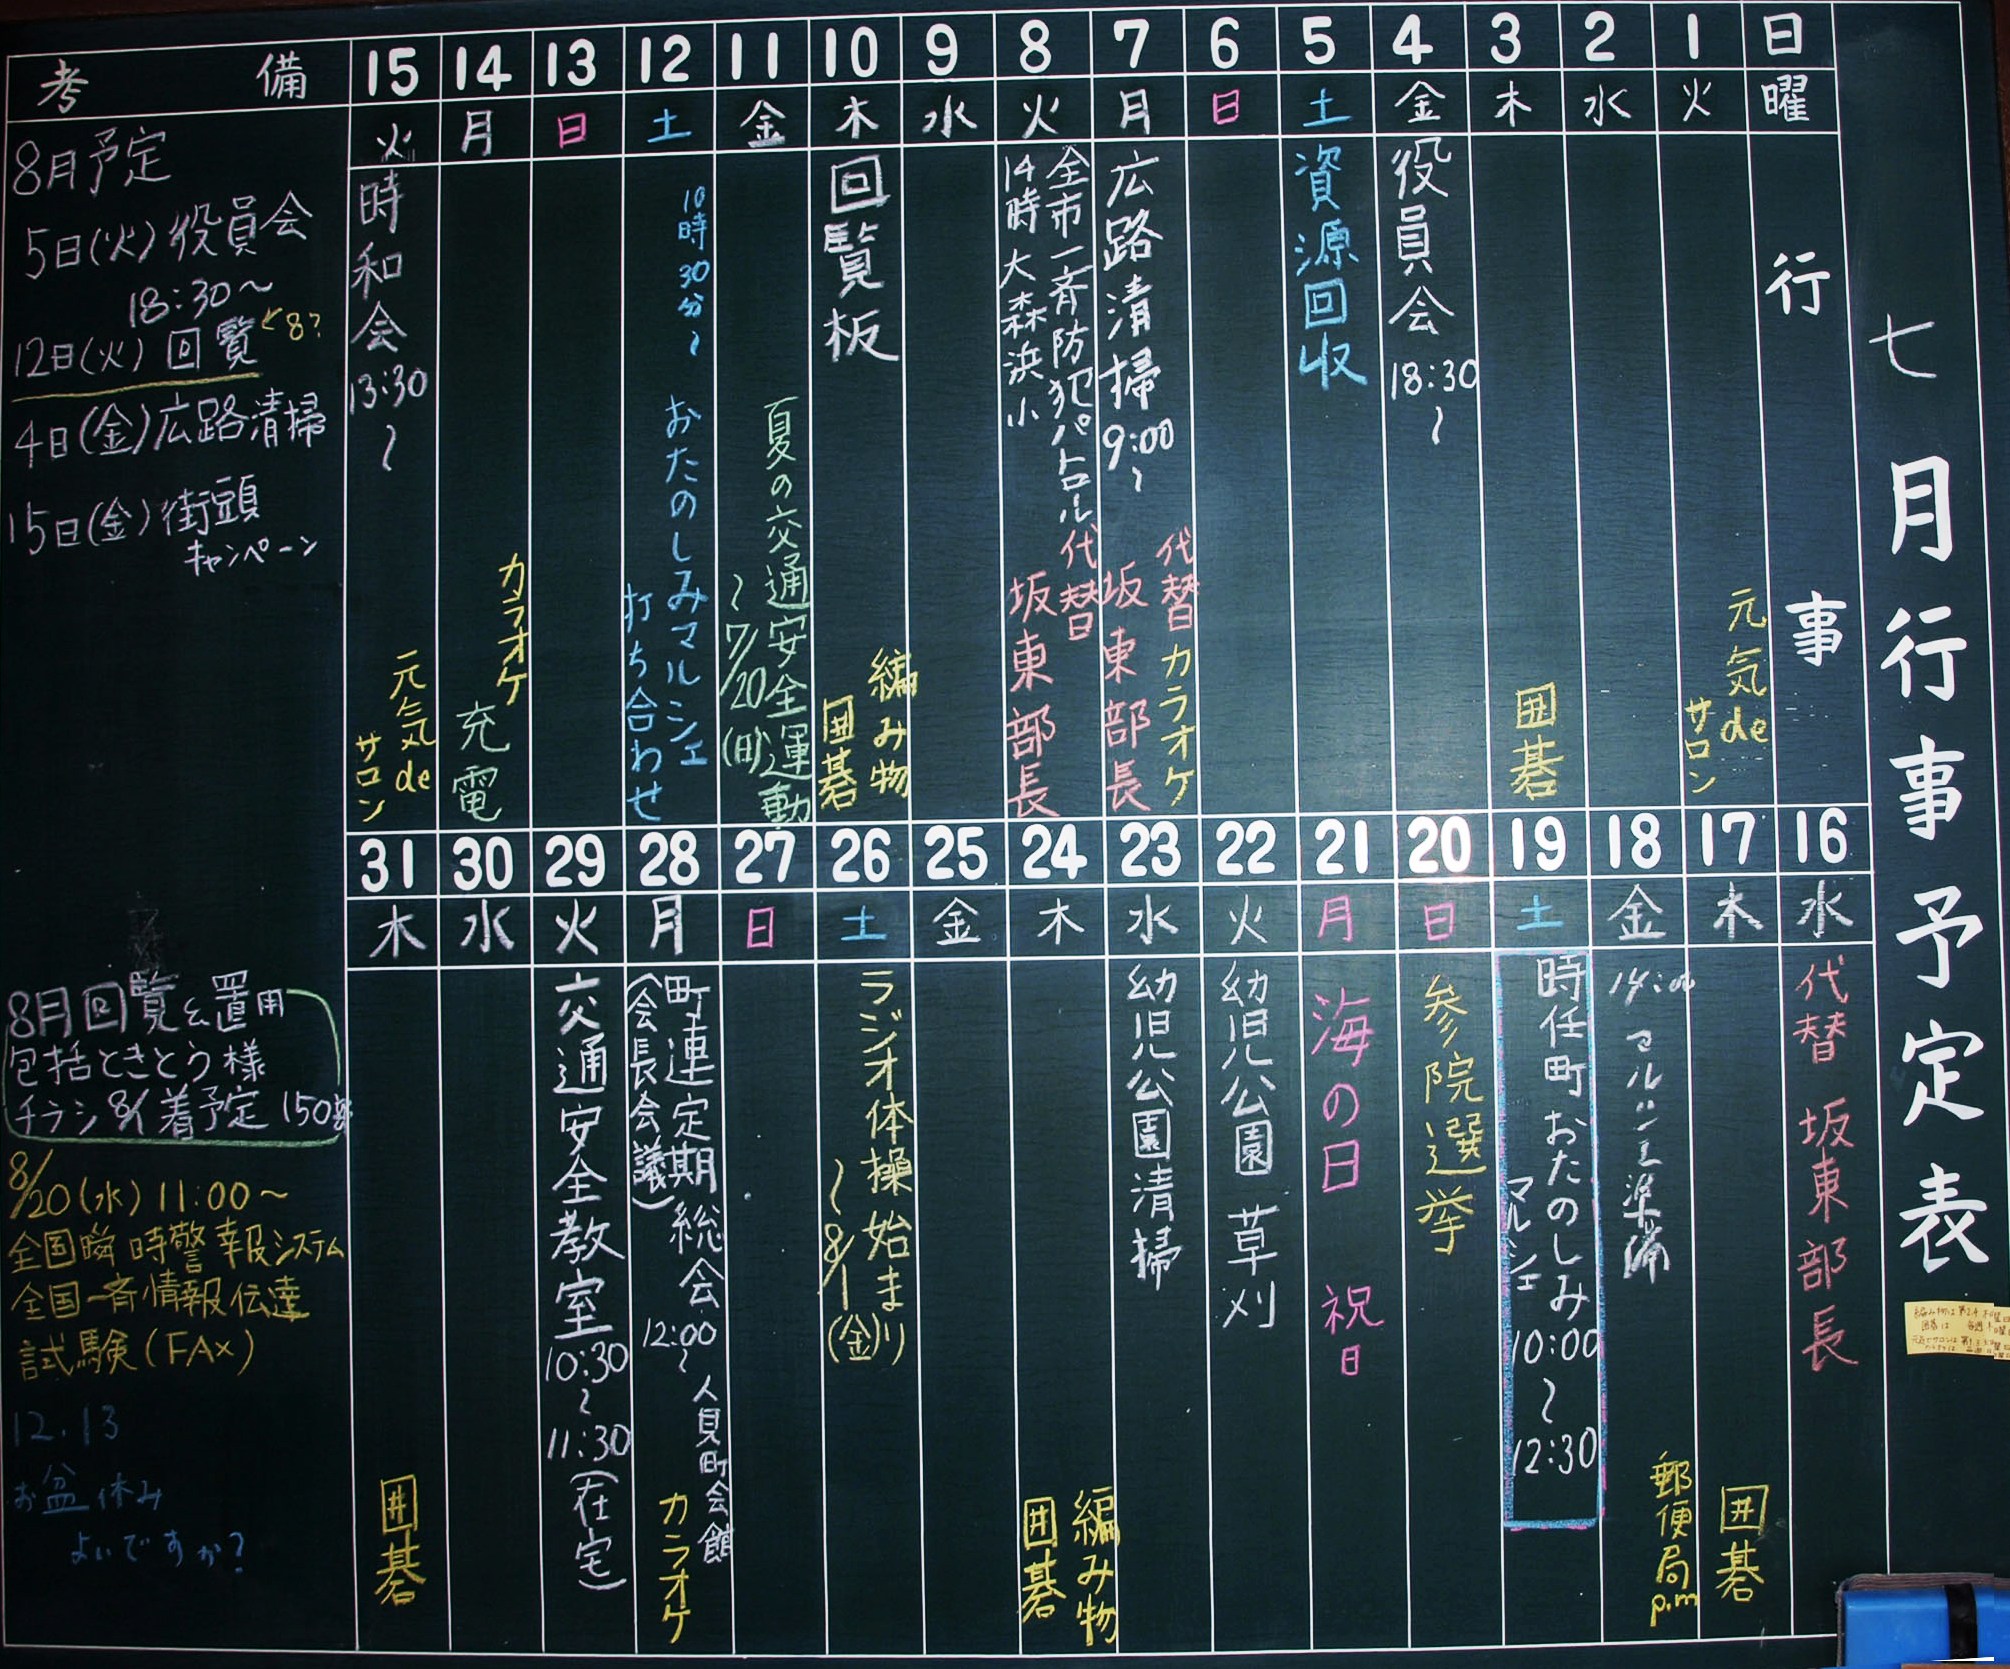 七月行事予定表
日
曜
行事
1
火
元気de
サロン
2
水
3
木
囲碁
4
金
役員会 18:30〜
5
土
資源回収
6
日
7
月
広路清掃 9:00〜
代替
坂東部長
カラオケ
8
火
全市一斉防犯パトロール
14時 大森浜小
代替
坂東部長
9
水
10
木
回覧板
編み物
囲碁
11
金
夏の交通安全運動
〜7/20(日)
12
土
10時30分〜 おたのしみマルシェ
打ち合わせ
13
日
14
月
カラオケ
充電
15
火
時和会 13:30〜
元気de
サロン
16
水
代替 坂東部長
17
木
囲碁
18
金
14:00 マルシェ準備
郵便局 p.m
19
土
時任町 おたのしみ
マルシェ
10:00〜12:30
20
日
参院選挙
21
月
海の日 祝日
22
火
幼児公園 草刈
23
水
幼児公園清掃
24
木
編み物
囲碁
25
金
26
土
ラジオ体操始まり
〜8/1(金)
27
日
28
月
町連定期総会
(会長会議)
12:00〜
人見町会館
カラオケ
29
火
交通安全教室
10:30〜11:30
(在宅)
30
水
31
木
囲碁
備考
8月予定
5日(火)役員会
18:30〜
12日(火)回覧
8?
4日(金)広路清掃
15日(金)街頭
キャンペーン
8月回覧と置用
包括ときとう様
チラシ8/1着予定 150
8/20(水)11:00〜
全国瞬時警報システム
全国一斉情報伝達
試験(FAX)
12.13
お盆休み
よいですか?